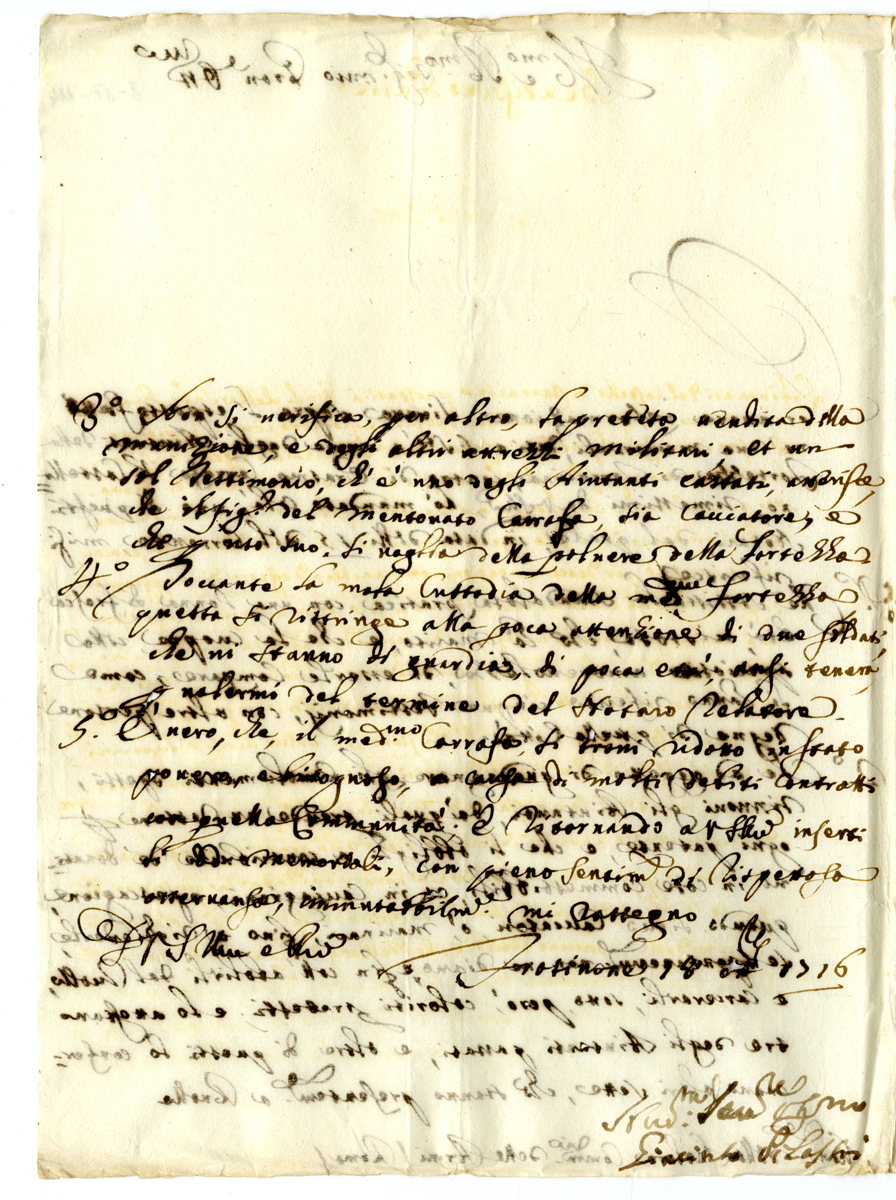 3.º Non si verifica, per altro, la pretesa vendita della
munizione, e degli altri attrezzi militari, et un
sol Testimonio, ch'è uno degli Aiutanti cassati, asserisce,
che il fig.º del mentovato Carrafa, sia Cacciatore, e
che p uso suo, si vaglia della polvere della Fortezza
4.º Toccante la mala Custodia della med.ma Fortezza
questa si ristringe alla poca attenzione di due soldati
che vi stanno di guardia, di poca età, anzi tenera,
p valermi del termine del Notaro Relatore.
5.º È vero, che, il med.mo Carrafa si trovi ridotto in stato
povero, e bisognoso, a causa di molti debiti contratti
con quella Communità. E ritornando a V S Ill.ma inserti
li due memoriali, con pieno sentim.to di rispettosa
osservanza, immutabilm.e mi rassegno
Di V S Ill.ma e R.ma
Frosinone 18 1716
Hum.
Giacinto